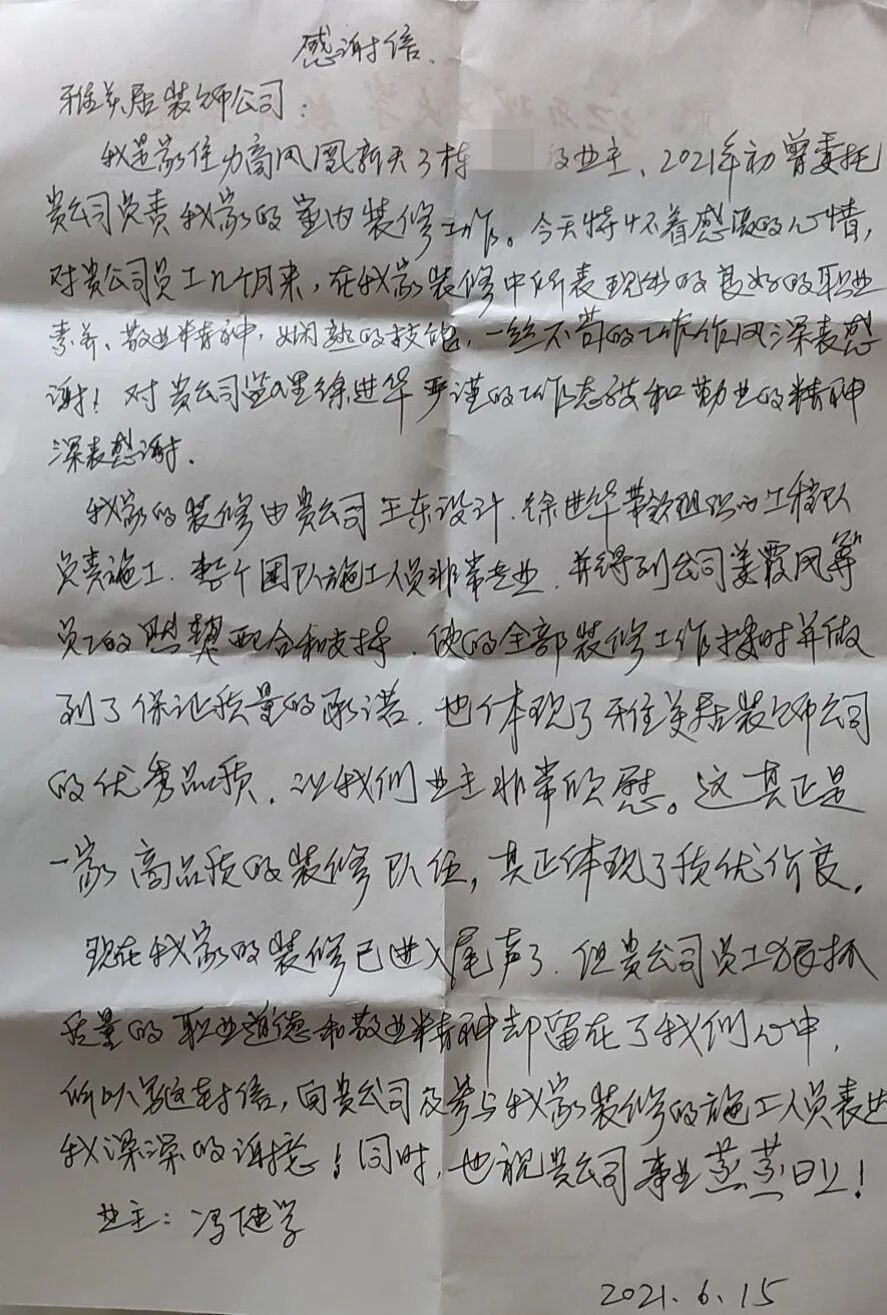 感谢信.
雅美居装饰公司:
我是家住力高凤凰新天3栋 的业主、2021年初曾委托
贵公司负责我家的室内装修工作。今天特怀着感激的心情,
对贵公司员工几个月来,在我家装修中所表现出的良好的职业
素养、敬业精神,娴熟的技能,一丝不苟的工作作风深表感
谢!对贵公司监理徐进华严谨的工作态度和勤业的精神
深表感谢.
我家的装修由贵公司王东设计.徐进华带领组织的工程队
负责施工.整个团队施工人员非常专业.并得到公司姜霞凤等
员工的默契配合和支持.使的全部装修工作按时并做
到了保证质量的承诺.也体现了雅美居装饰公司
的优秀品质.让我们业主非常欣慰。这真正是
一家高品质的装修队伍,真正体现了质优价良.
现在我家的装修已进入尾声了.但贵公司员工狠抓
质量的职业道德和敬业精神却留在了我们心中,
所以写这封信,向贵公司及参与我家装修的施工人员表达
我深深的谢意!同时,也祝贵公司事业蒸蒸日上!
业主:冯健学
2021.6.15